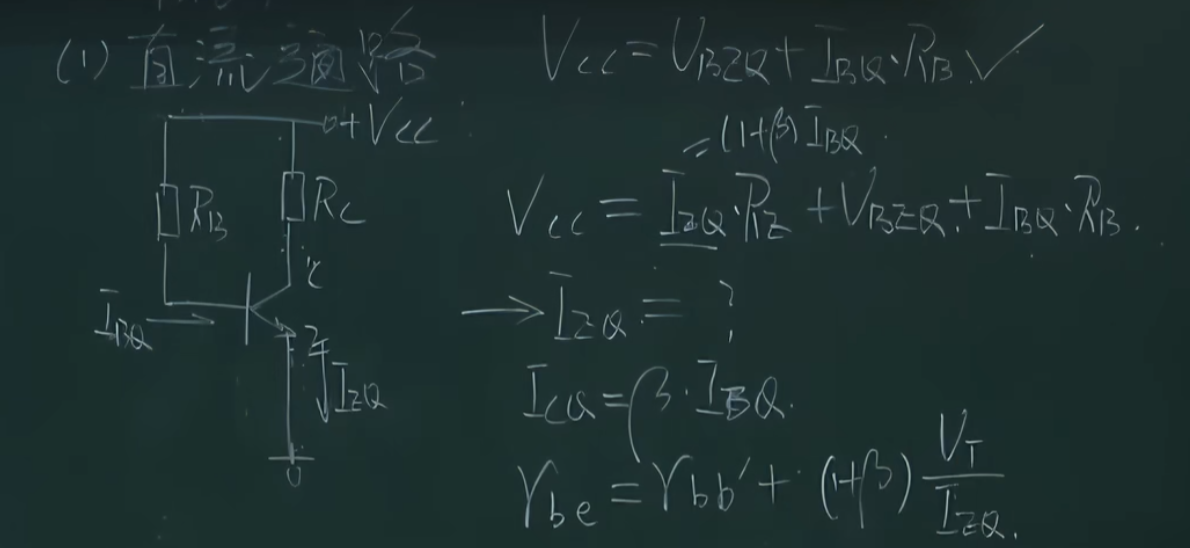 (1) 直流通路
+VCC
RB
RC
C
IBQ
E
IEQ
VCC = UBEQ + IBQ·RB ✓
= (1+β) IBQ
VCC = IEQ·RE + VBEQ + IBQ·RB.
→ IEQ = ?
ICQ = β·IBQ.
rbe = rbb' + (1+β) VT / IEQ.